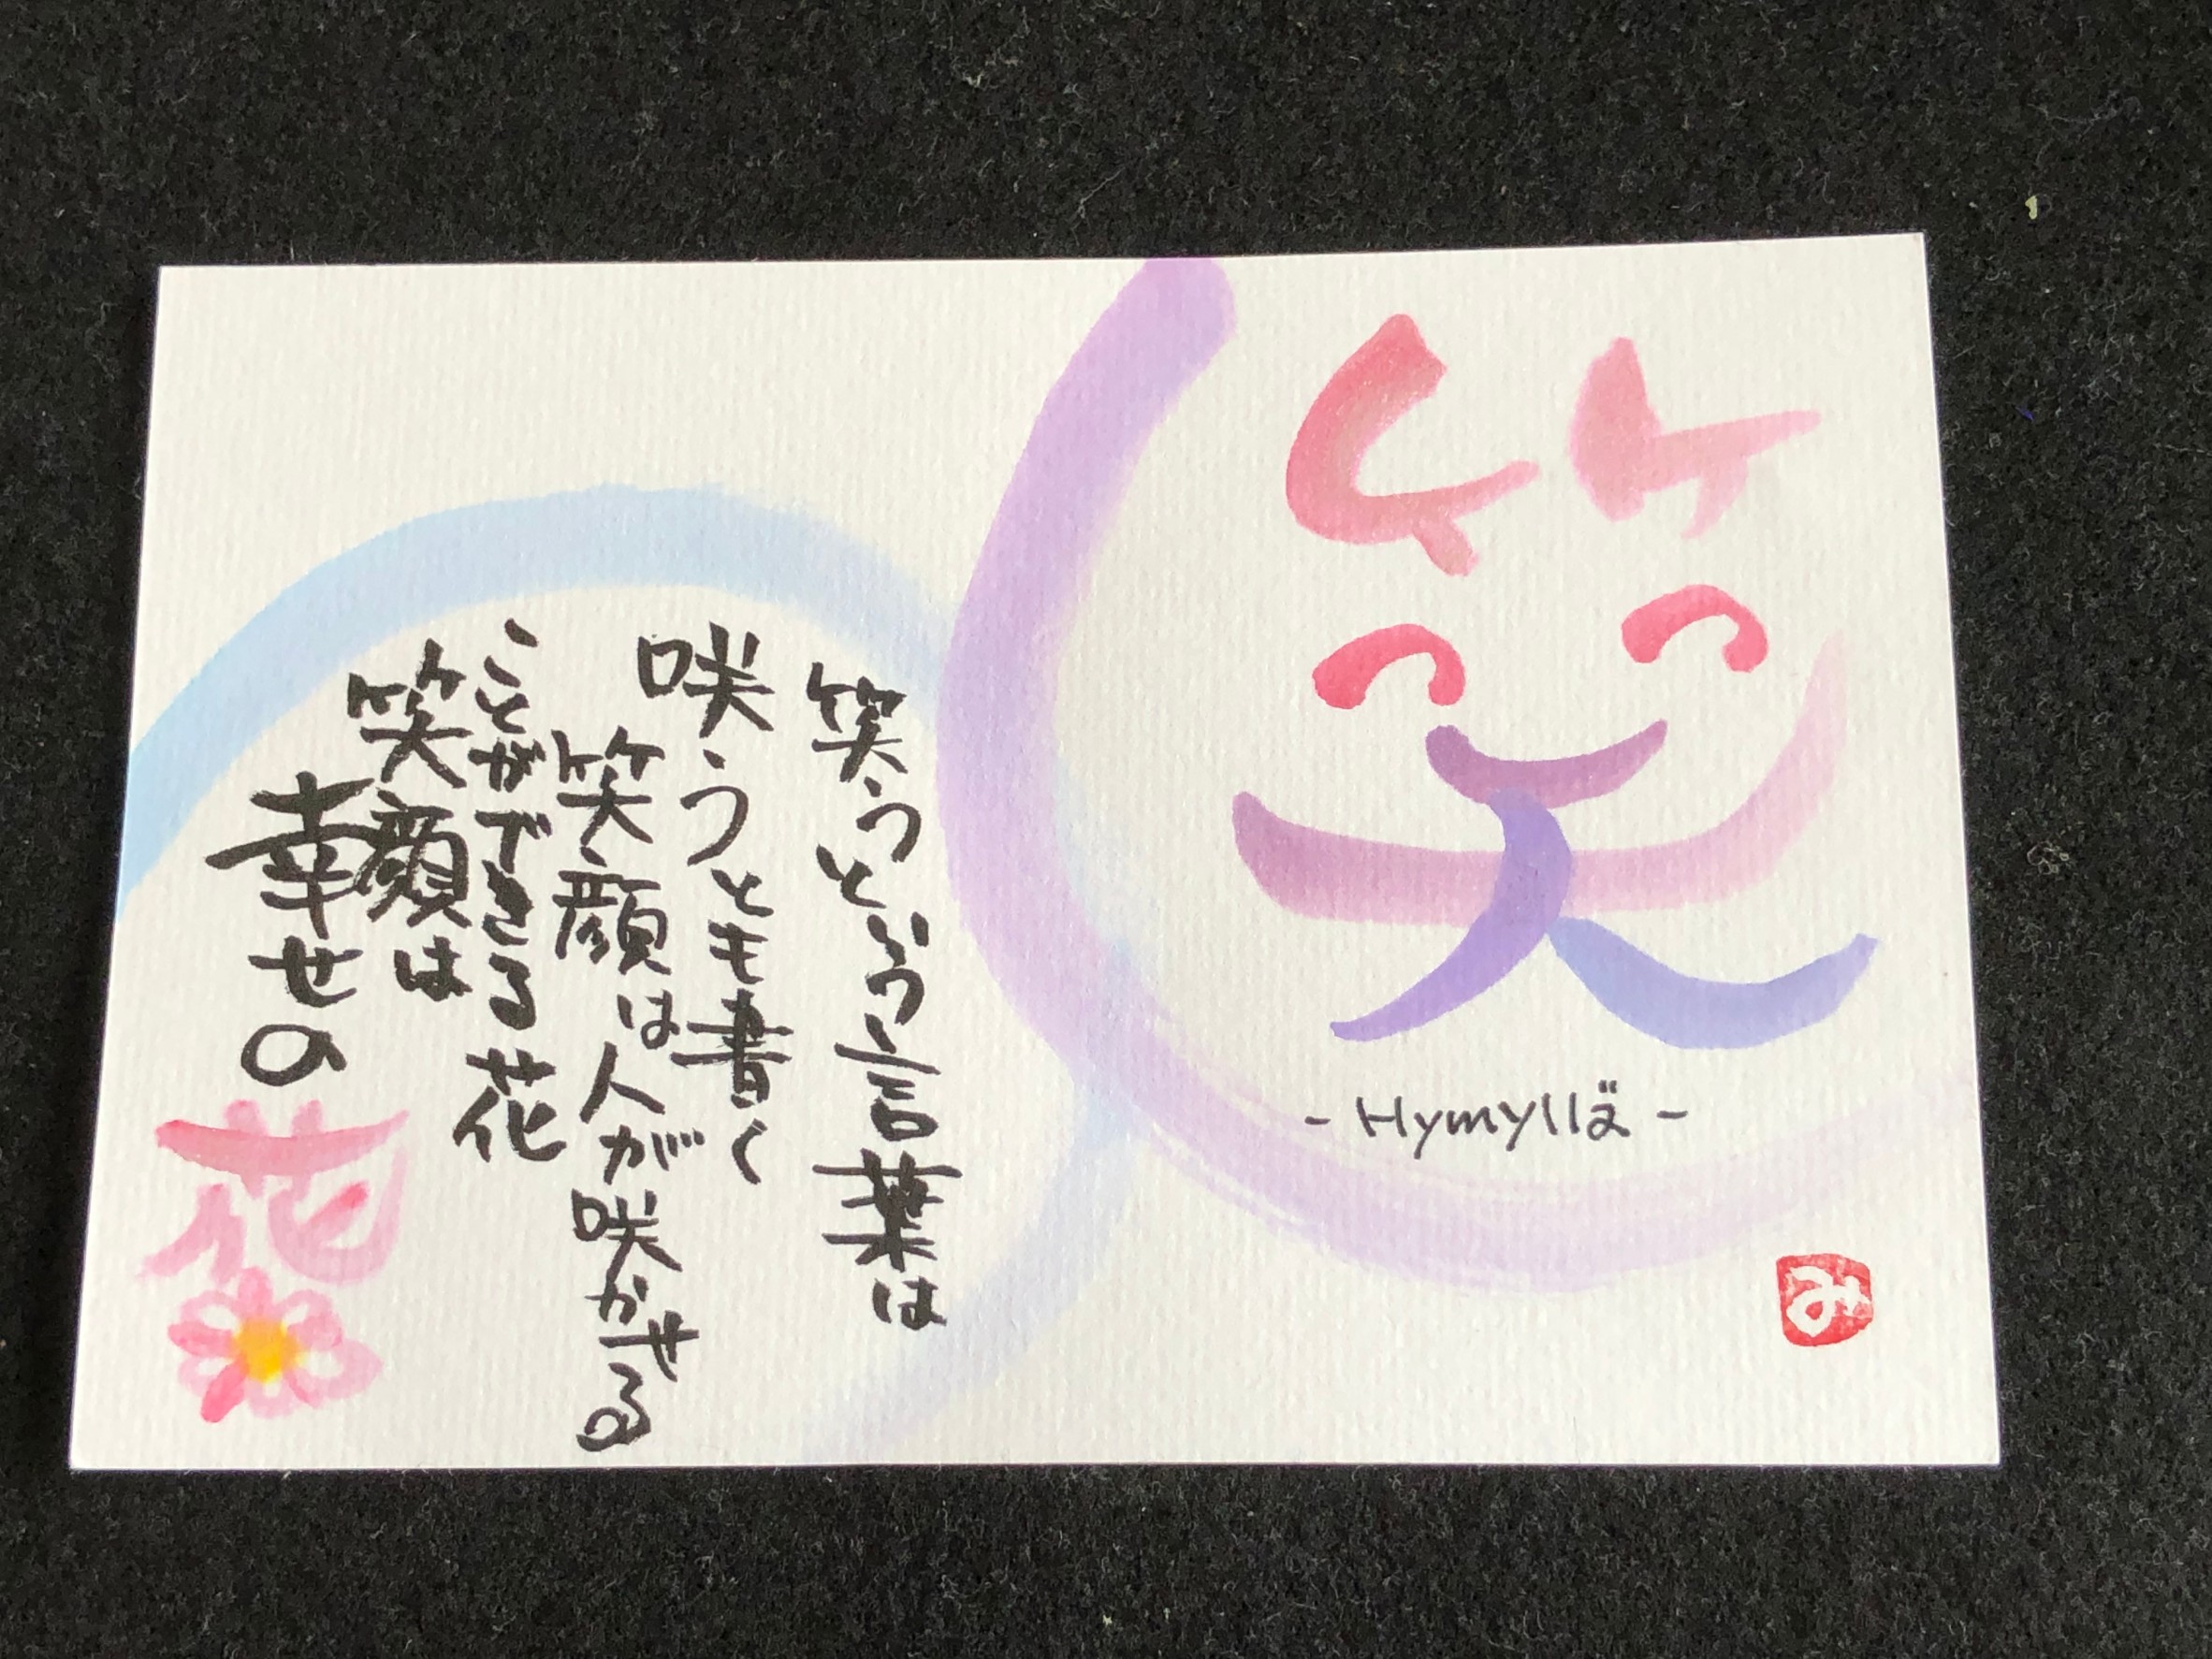 笑
- Hymyllä -
み
笑うという言葉は
咲うとも書く
笑顔は人が咲かせる
ことができる花
笑顔は
幸せの
花